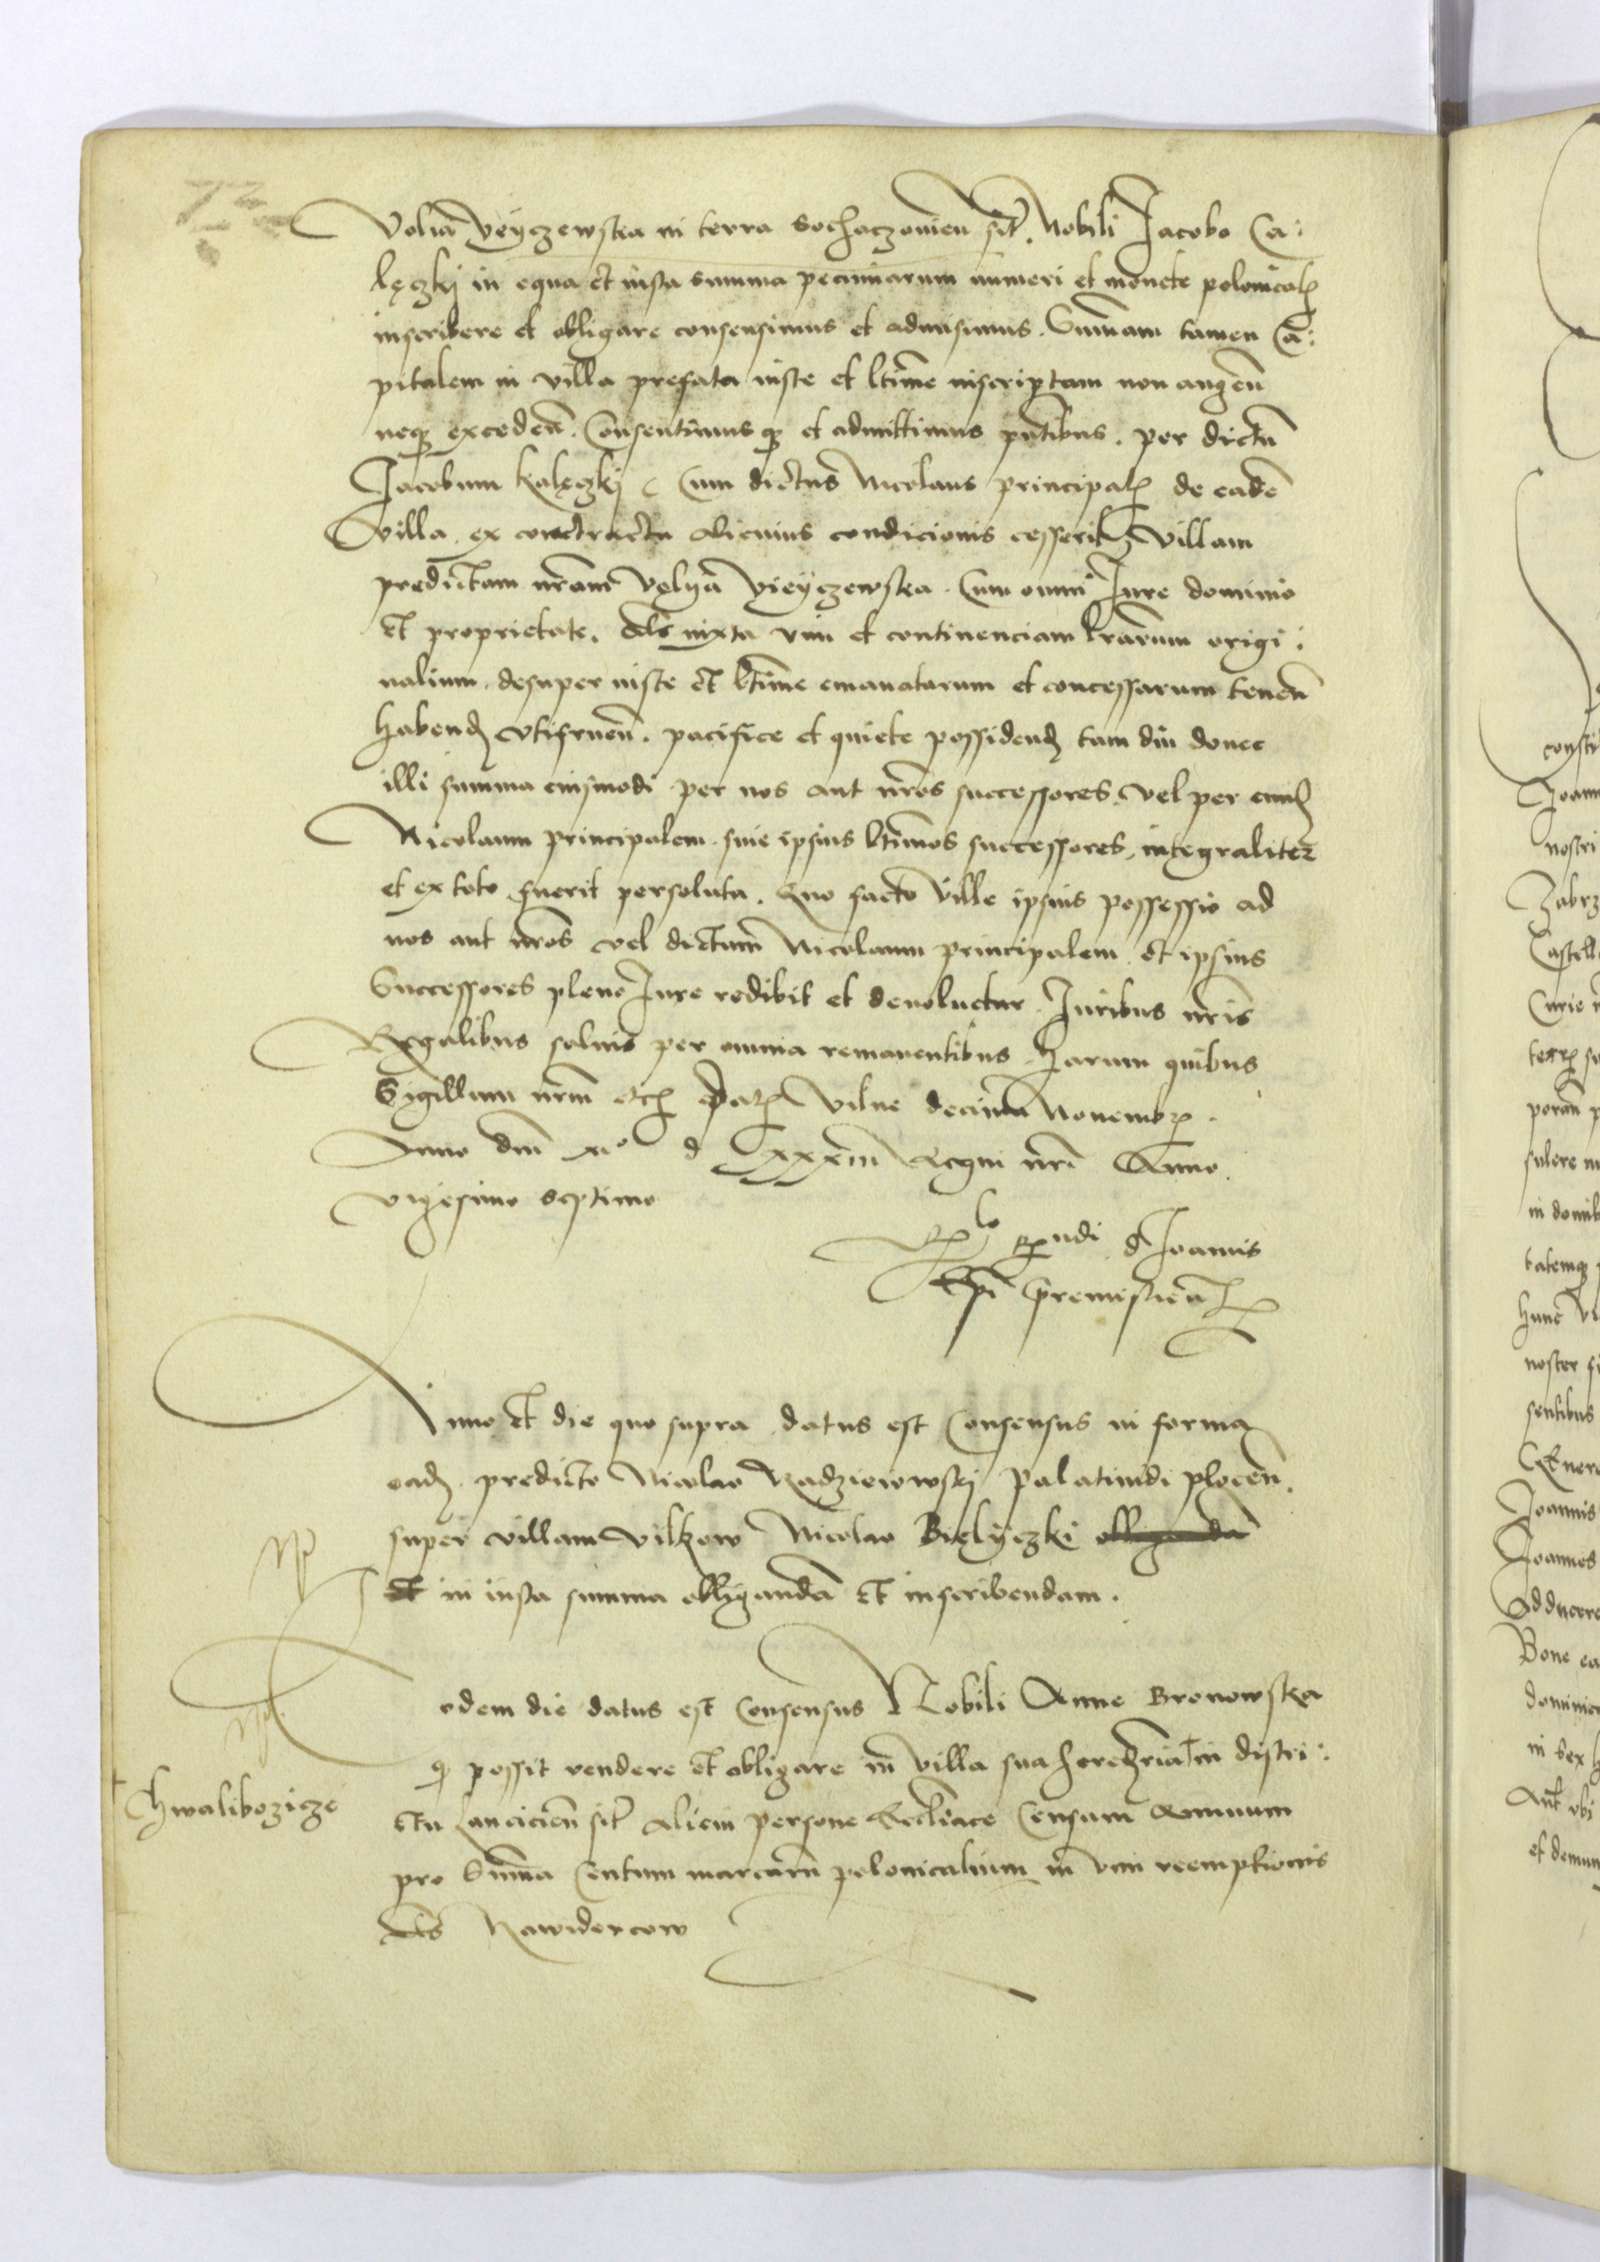 73
Voliam Veyczewska in terra Sochaczovien sit. Nobili Jacobo Ca:
lęczkj in equa et iusta summa pecuniarum numeri et monete polonical
inscribere et obligare consensimus et admisimus. Summam tamen Ca:
pitalem in villa prefata iuste et ltime inscriptam non augen
neq exceden. Consentimus q et admittimus pntibus. per dictu
Jacobum Kalęczkj Cum dictus Nicolaus principal de eade
villa ex contractu alicuius condicionis cesserit Villam
predictam nram Volya Vieyczewska Cum omni Jure dominio
et proprietate. iuxta vim et continenciam lrarum origi:
nalium desuper iuste et ltime emanatarum et concessarum tenen
habend Utifruen. pacifice et quiete possidend tam diu donec
illi summa eiusmodi per nos aut nros successores. vel per eund
Nicolaum principalem. siue ipsius ltimos successores integraliter
et ex toto fuerit persoluta. Quo facto Ville ipsius possessio ad
nos aut nros vel dictum Nicolaum principalem et ipsius
Successores pleno Jure redibit et deuoluetur. Juribus nris
Regalibus saluis per omnia remanentibus. Harum quibus
Sigillum nrm etc Dat Vilne decima Novembr.
Anno dni Mo d XXXIII Regni nri Anno
vigesimo septimo
Rlo Rndi d Joannis
Epi Premislien
Anno et die quo supra datus est Consensus in forma
ead predicto Nicolao Radziewowskj Palatinidi plocen.
super villam Vilkow Nicolao Bielyczki obliganda
et in iusta summa obliganda et inscribendam.
Eodem die datus est Consensus Nobili Anne Bronowska
q possit vendere et obligare in Villa sua hereditria in distri:
ctu Lancicien sit alicui persone Eccliace Censum Annuum
pro Summa Centum marcarum polonicalium in vim reemptionis
Chwalibozicze